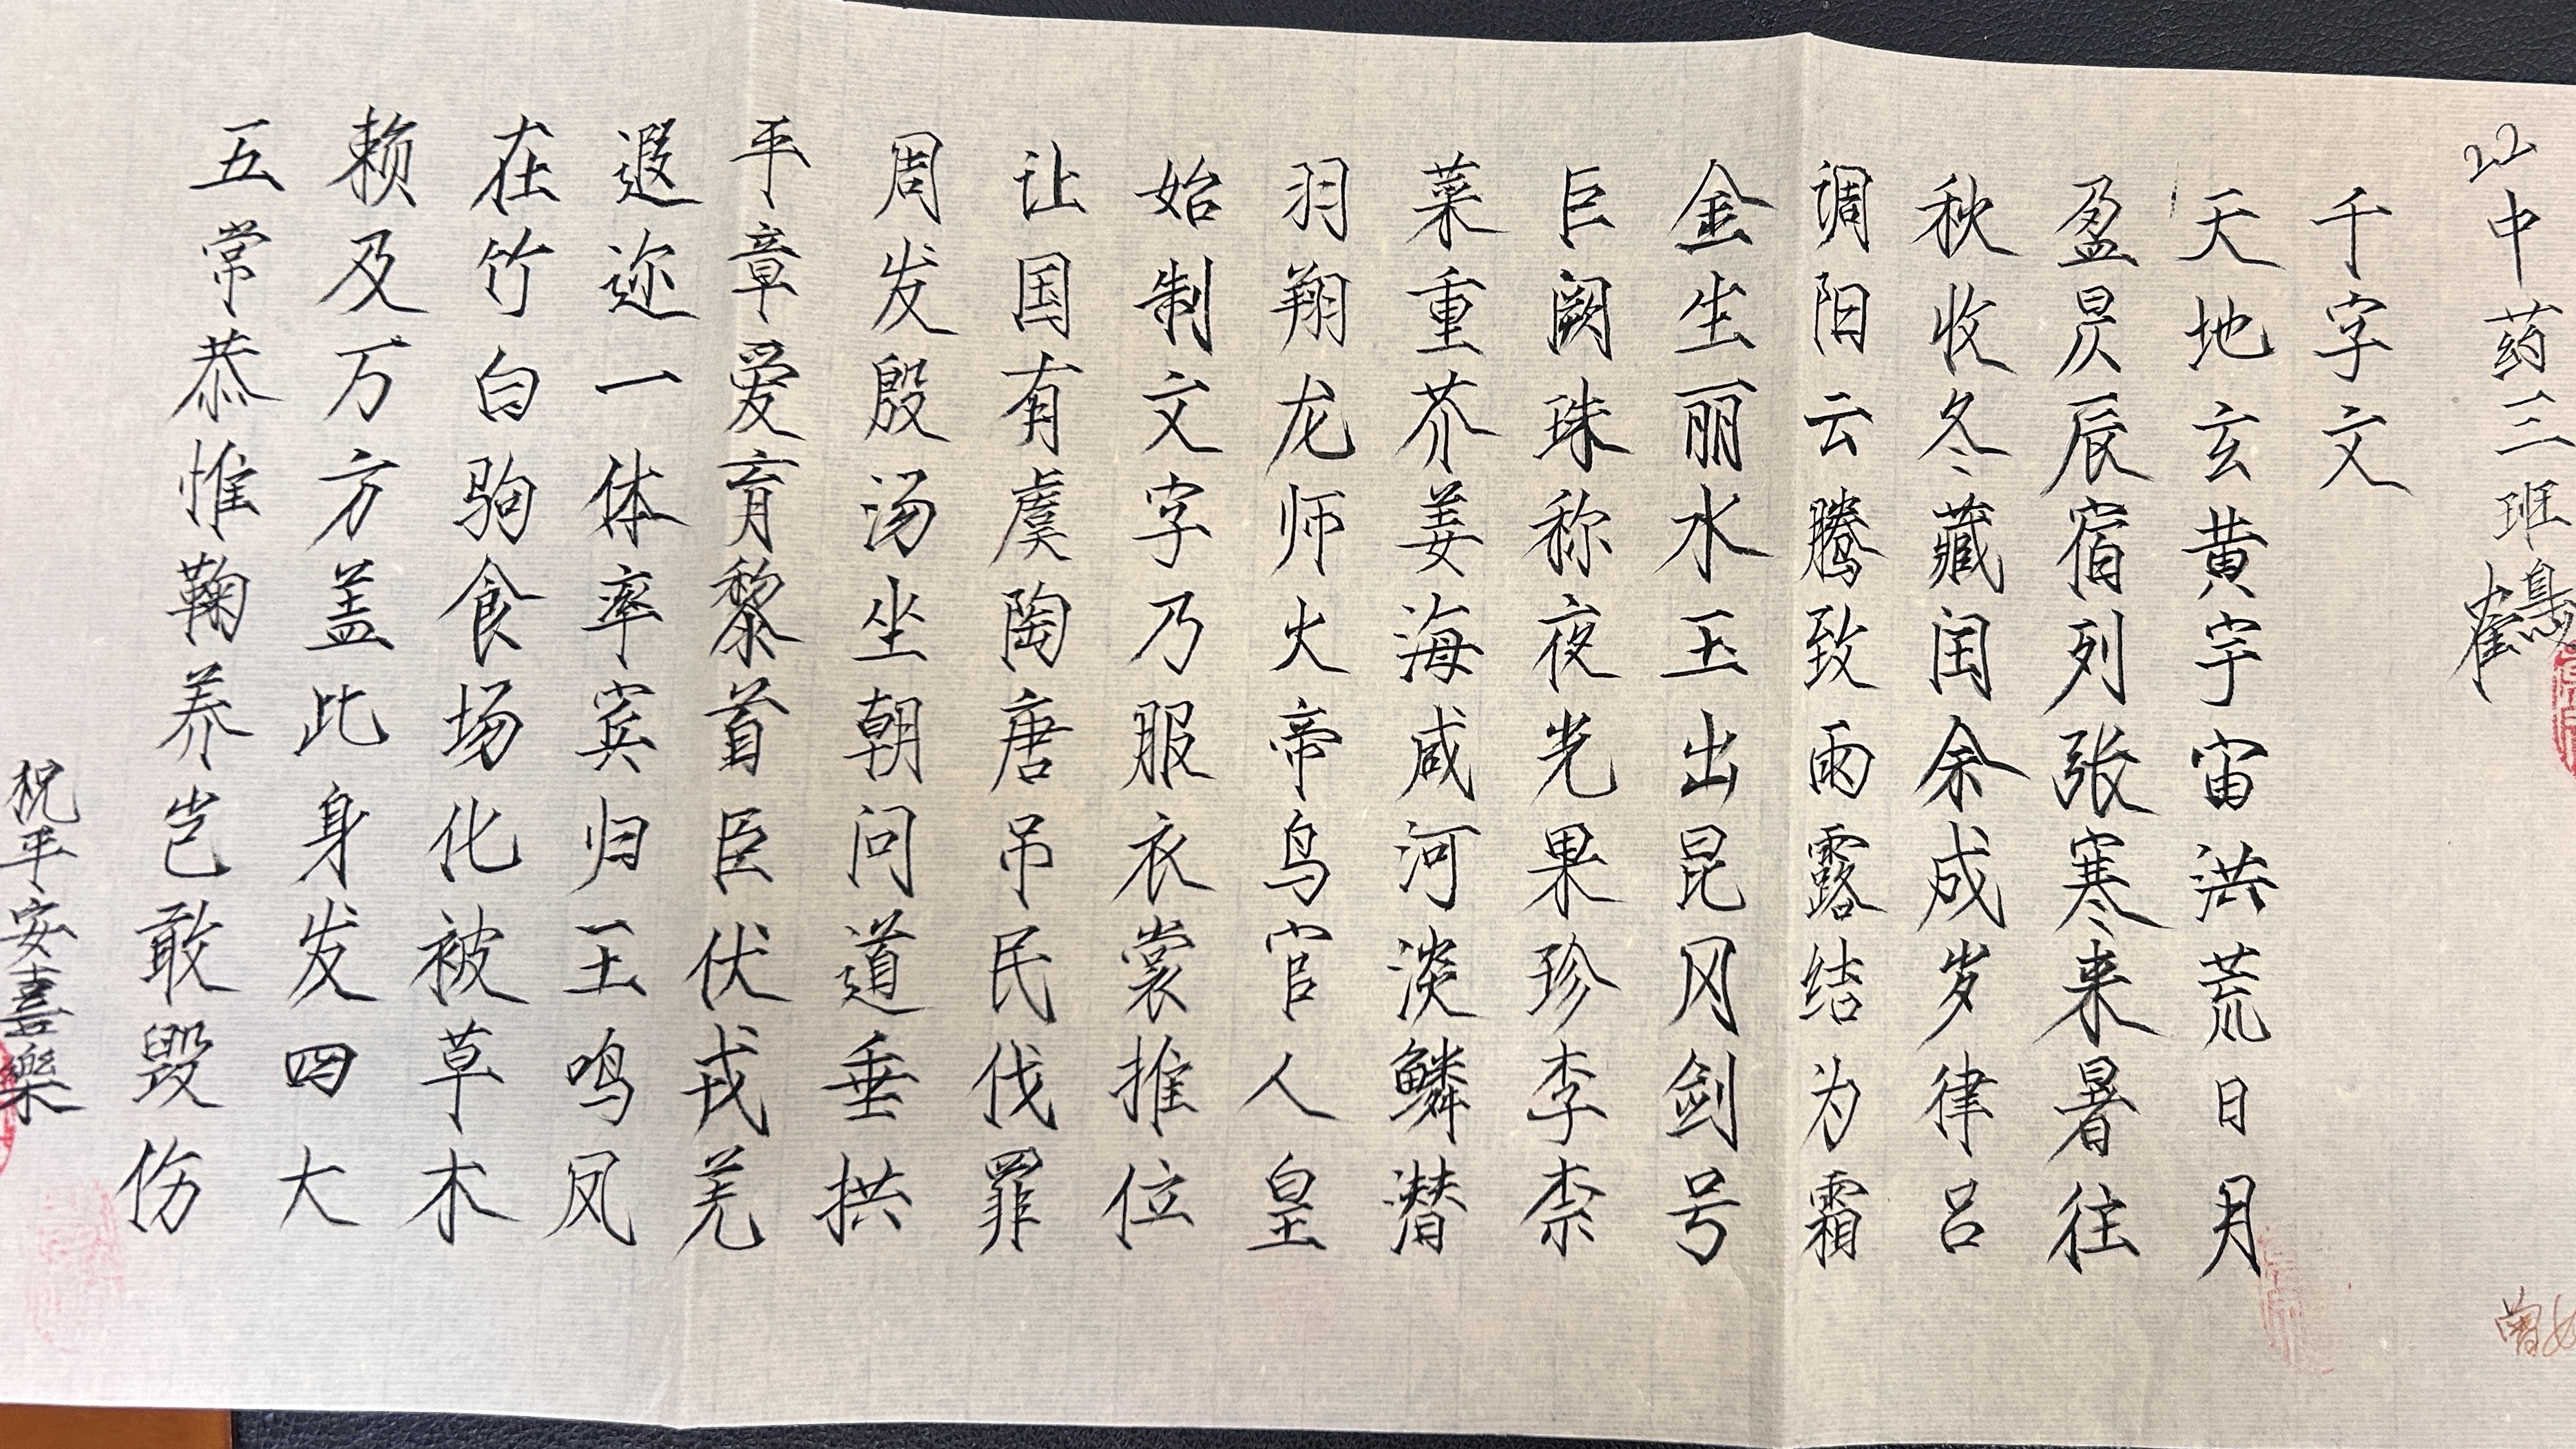 22中药三班
千字文
天地玄黄宇宙洪荒日月
盈昃辰宿列张寒来暑往
秋收冬藏闰余成岁律吕
调阳云腾致雨露结为霜
金生丽水玉出昆冈剑号
巨阙珠称夜光果珍李柰
菜重芥姜海咸河淡鳞潜
羽翔龙师火帝鸟官人皇
始制文字乃服衣裳推位
让国有虞陶唐吊民伐罪
周发殷汤坐朝问道垂拱
平章爱育黎首臣伏戎羌
遐迩一体率宾归王鸣凤
在竹白驹食场化被草木
赖及万方盖此身发四大
五常恭惟鞠养岂敢毁伤
祝平安喜樂